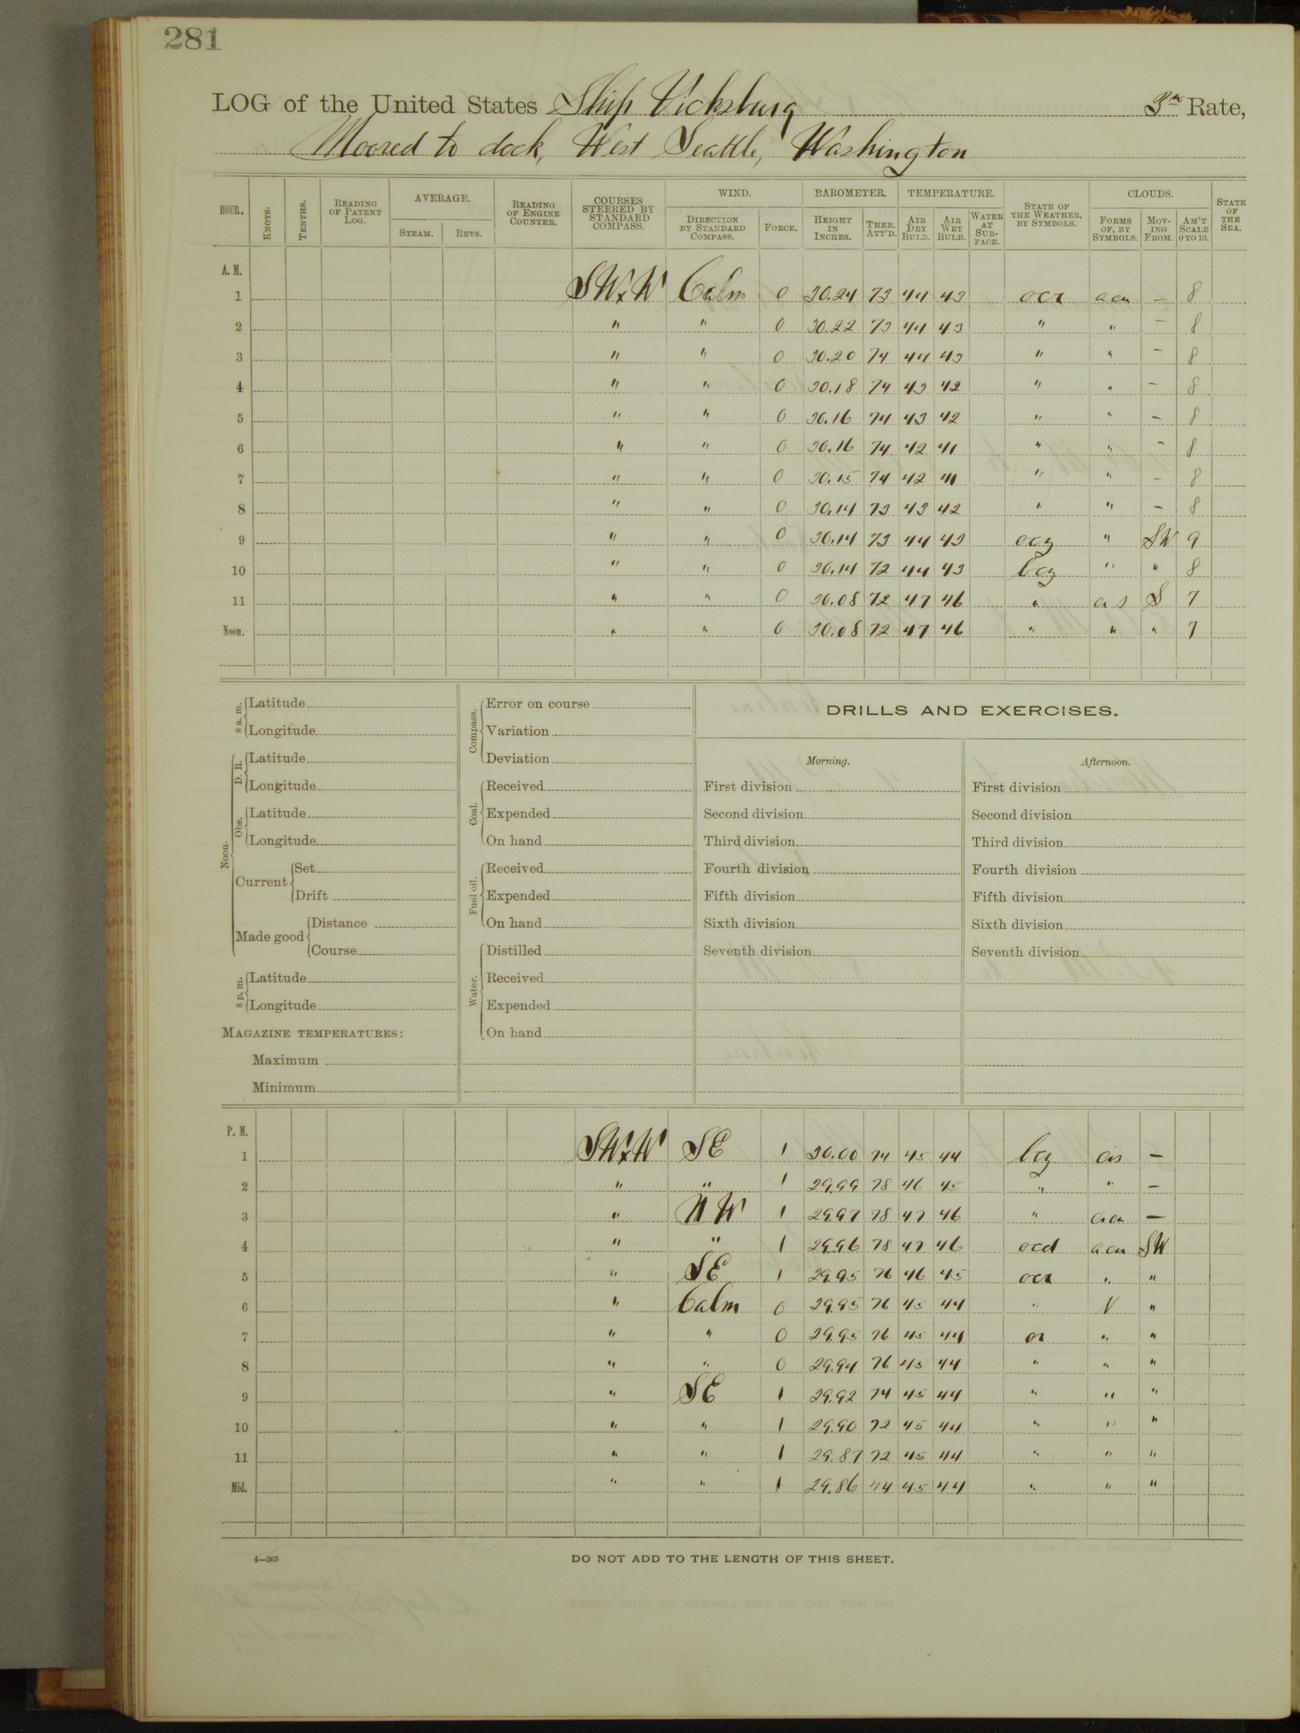 281
LOG of the United States Ship Vicksburg 3rd Rate,
Moored to dock, West Seattle, Washington
HOUR. KNOTS. TENTHS. READING OF PATENT LOG. AVERAGE. STEAM. REVS. READING OF ENGINE COUNTER. COURSES STEERED BY STANDARD COMPASS. WIND. DIRECTION BY STANDARD COMPASS. FORCE. BAROMETER. HEIGHT IN INCHES. THER. ATT'D. TEMPERATURE. AIR DRY BULB. AIR WET BULB. WATER AT SURFACE. STATE OF THE WEATHER, BY SYMBOLS. CLOUDS. FORMS OF, BY SYMBOLS. MOVING FROM. AM'T SCALE 0 TO 10. STATE OF THE SEA.
A. M.
1 SWxW Calm 0 30.24 73 44 43 ocr acu – 8
2 " " 0 30.22 73 44 43 " " – 8
3 " " 0 30.20 74 44 43 " " – 8
4 " " 0 30.18 74 43 42 " " – 8
5 " " 0 30.16 74 43 42 " " – 8
6 " " 0 30.16 74 42 41 " " – 8
7 " " 0 30.15 74 42 41 " " – 8
8 " " 0 30.14 73 43 42 " " – 8
9 " " 0 30.14 73 44 43 ocz " SW 9
10 " " 0 30.14 72 44 43 bcz " " 8
11 " " 0 30.08 72 47 46 " as S 7
Noon. " " 0 30.08 72 47 46 " " " 7
8 a. m. Latitude
Longitude
Noon. D. R. Latitude
Longitude
Obs. Latitude
Longitude
Current Set
Drift
Made good Distance
Course
8 p. m. Latitude
Longitude
MAGAZINE TEMPERATURES:
Maximum
Minimum
Compass. Error on course
Variation
Deviation
Coal. Received
Expended
On hand
Fuel oil. Received
Expended
On hand
Water. Distilled
Received
Expended
On hand
DRILLS AND EXERCISES.
Morning.
First division
Second division
Third division
Fourth division
Fifth division
Sixth division
Seventh division
Afternoon.
First division
Second division
Third division
Fourth division
Fifth division
Sixth division
Seventh division
P. M.
1 SWxW SE 1 30.00 74 45 44 bcz cis –
2 " " 1 29.99 78 46 45 " " –
3 " NW 1 29.97 78 47 46 " –
4 " " 1 29.96 78 47 46 ocd acu SW
5 " SE 1 29.95 76 46 45 ocr " "
6 " Calm 0 29.95 76 45 44 " N "
7 " " 0 29.95 76 45 44 or " "
8 " " 0 29.94 76 45 44 " " "
9 " SE 1 29.92 74 45 44 " " "
10 " " 1 29.90 72 45 44 " " "
11 " " 1 29.87 72 45 44 " " "
Mid. " " 1 29.86 74 45 44 " " "
4—265
DO NOT ADD TO THE LENGTH OF THIS SHEET.